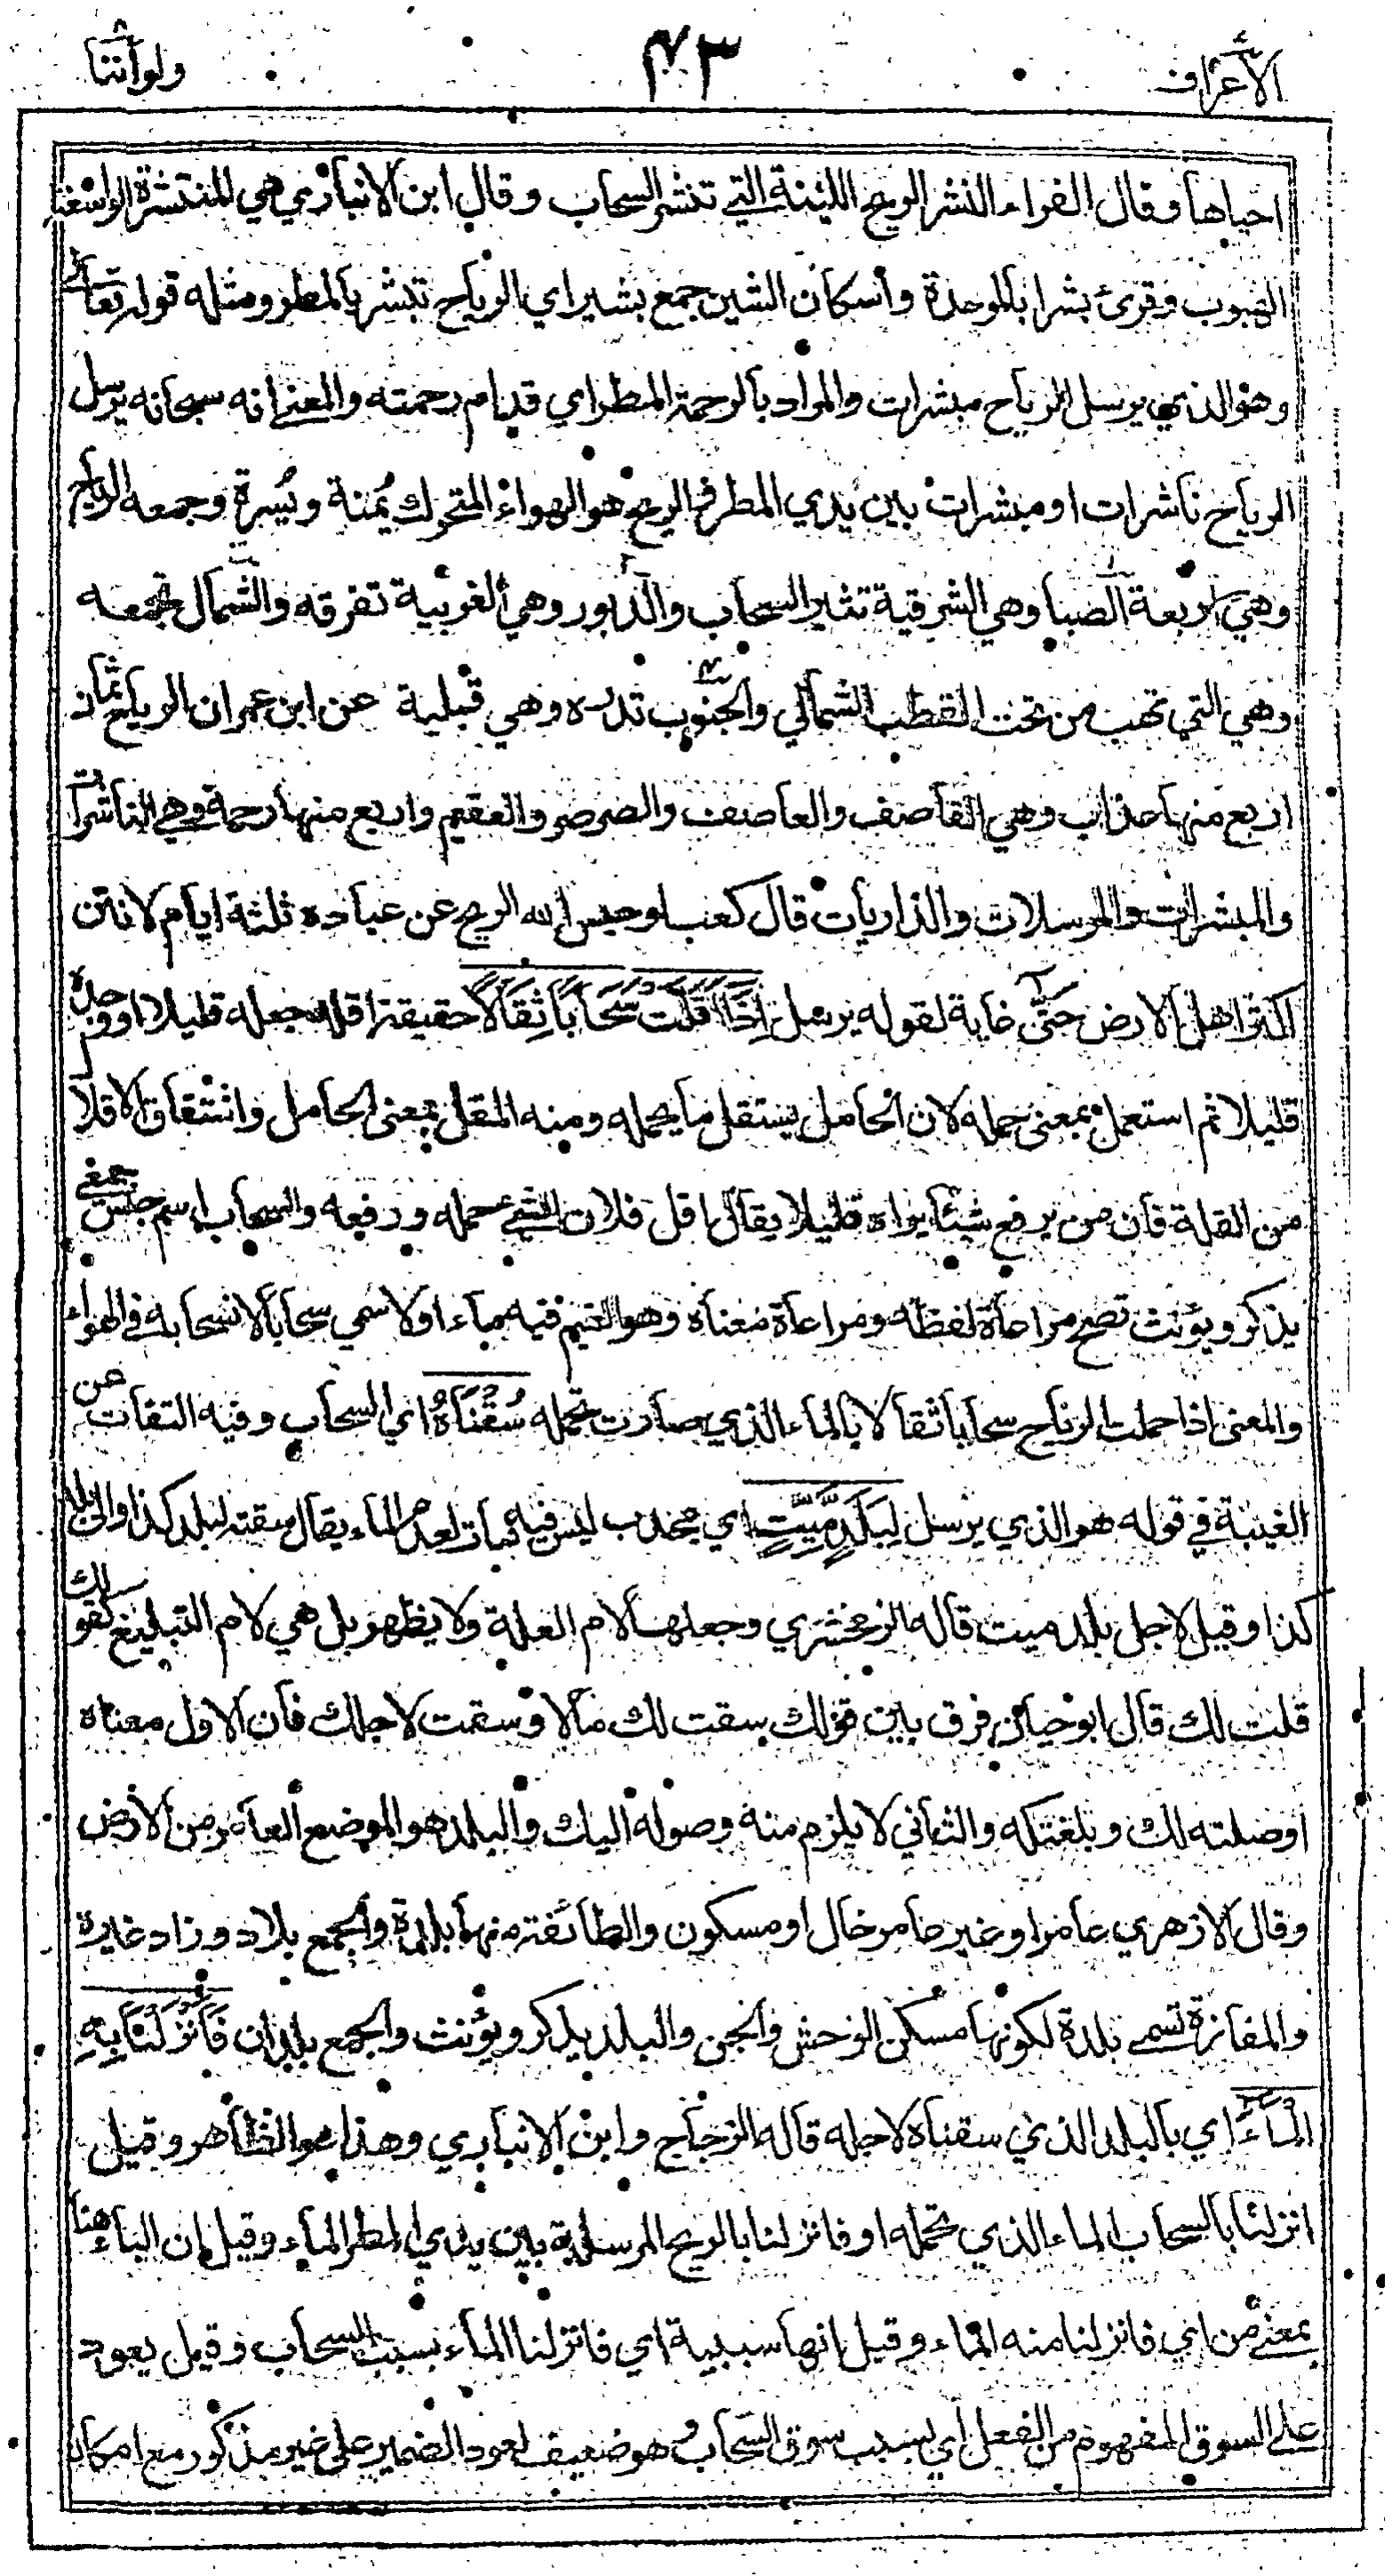 الأعراف ٤٣ ولو أننا
احياها وقال الفراء النشر الريح اللينة التي تنشر السحاب وقال ابن الانباري هي المنتشرة الواسعة
الهبوب وقرئ بشرا بالموحدة وأسكان الشين جمع بشير اي الرياح تبشر بالمطر ومثله قوله تعالى
وهو الذي يرسل الرياح مبشرات والمراد بالرحمة المطر اي قدام رحمته والمعنى انه سبحانه يرسل
الرياح ناشرات او مبشرات بين يدي المطر والريح هو الهواء المتحرك يُمنة ويُسرة وجمعه الرياح
وهي اربعة الصبا وهي الشرقية تثير السحاب والدبور وهي الغربية تفرقه والشمال تجمعه
وهي التي تهب من تحت القطب الشمالي والجنوب تدره وهي قبلية عن ابن عمر ان الرياح ثمان
اربع منها عذاب وهي القاصف والعاصف والصرصر والعقيم واربع منها رحمة وهي الناشرات
والمبشرات والمرسلات والذاريات قال كعب لو حبس الله الريح عن عباده ثلثة ايام لانتن
اكثر اهل الارض حَتَّى غاية لقوله يرسل إِذَا أَقَلَّتْ سَحَابًا ثِقَالًا حقيقة اقله جعله قليلا او وجده
قليلا ثم استعمل بمعنى حمله لان الحامل يستقل ما يحمله ومنه المقل بمعنى الحامل واشتقاق الاقلال
من القلة فان من يرفع شيئا يراه قليلا يقال اقل فلان الشيء حمله ورفعه والسحاب اسم جنس جمعي
يذكر ويؤنث تصح مراعاة لفظه ومراعاة معناه وهو الغيم فيه ماء او لا سمي سحابا لانسحابه في الهواء
والمعنى اذا حملت الرياح سحابا ثقالا بالماء الذي صارت تحمله سُقْنَاهُ اي السحاب وفيه التفات عن
الغيبة في قوله هو الذي يرسل لِبَلَدٍ مَّيِّتٍ اي مجدب ليس فيه نبات لعدم الماء يقال سقته لبلد كذا والى بلد
كذا وقيل لاجل بلد ميت قاله الزمخشري وجعلها لام العلة ولا يظهر بل هي لام التبليغ كقولك
قلت لك قال ابو حيان فرق بين قولك سقت لك مالا وسقت لاجلك فان الاول معناه
اوصلته لك وبلغتكه والثاني لا يلزم منه وصوله اليك والبلد هو الموضع العامر من الارض
وقال الازهري عامرا وغير عامر خال او مسكون والطائفة منها بلدة والجمع بلاد وزاد غيره
والمفازة تسمى بلدة لكونها مسكن الوحش والجن والبلد يذكر ويؤنث والجمع بلدان فَأَنْزَلْنَا بِهِ
الْمَاءَ اي بالبلد الذي سقناه لاجله قاله الزجاج وابن الانباري وهذا هو الظاهر وقيل
انزلنا بالسحاب الماء الذي تحمله او فانزلنا بالريح المرسلة بين يدي المطر الماء وقيل ان الباء هنا
بمعنى من اي فانزلنا منه الماء وقيل انها سببية اي فانزلنا الماء بسبب السحاب وقيل يعود
على السوق المفهوم من الفعل اي بسبب سوق السحاب وهو ضعيف لعود الضمير على غير مذكور مع امكان